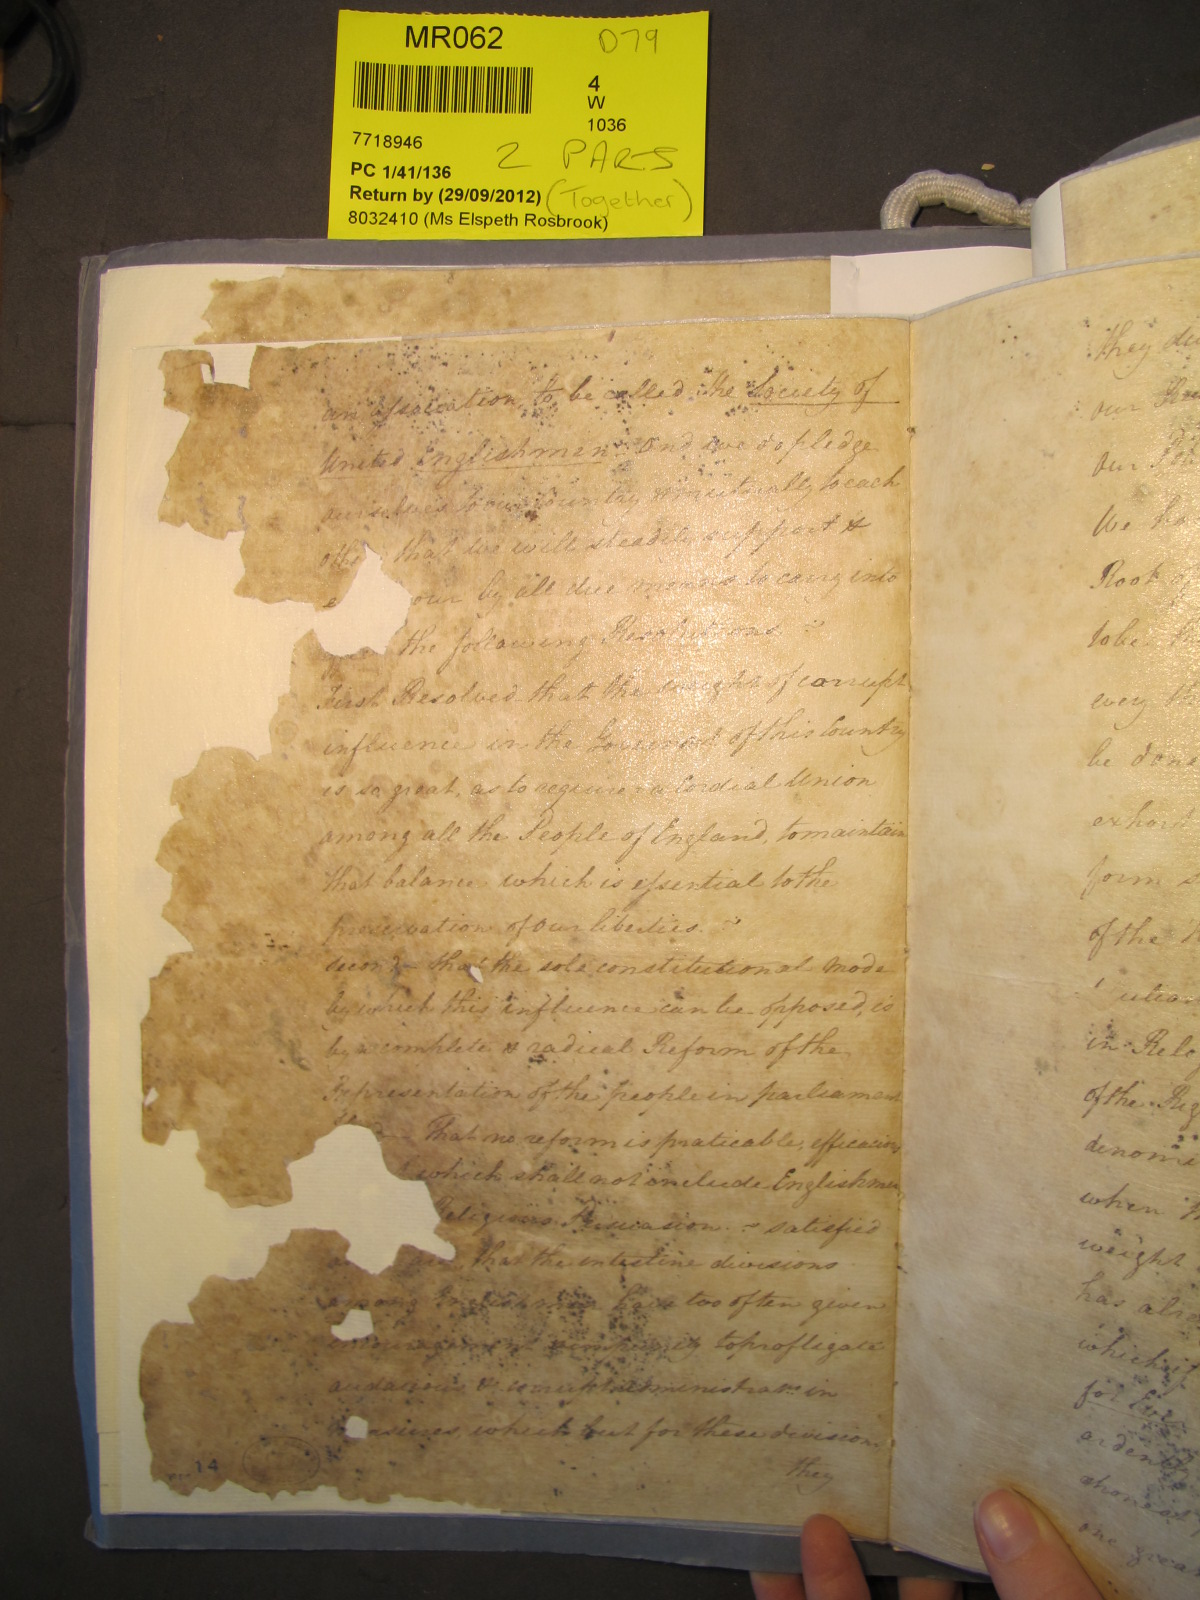 MR062 D79
4
W
1036
7718946
2 PARTS
PC 1/41/136
Return by (29/09/2012) (Together)
8032410 (Ms Elspeth Rosbrook)
an association to be called the Society of
United Englishmen. And we do pledge
ourselves to our Country & mutually to each
other that we will steadily support &
e our by all due means to carry into
the following Resolutions
First Resolved that the weight of corrupt
influence in the Government of this Country
is so great, as to require a Cordial Union
among all the People of England, to maintain
that balance which is essential to the
preservation of our liberties.
second - that the sole constitutional mode
by which this influence can be opposed, is
by a complete & radical Reform of the
Representation of the people in parliament
That no reform is praticable, efficacious
which shall not include Englishmen
Religious Persuasion. satisfied
that the intestine divisions
among Englishmen have too often given
encouragement & impunity to profligate
audacious & corrupt administration in
measures, which but for these divisions
they
14
they du
our
our
We ha
Rook of
to be th
every th
be done
exhort
form s
of the
in Relig
of the Rig
denomi
when
weight
has alr
which it
for
arden
one grea